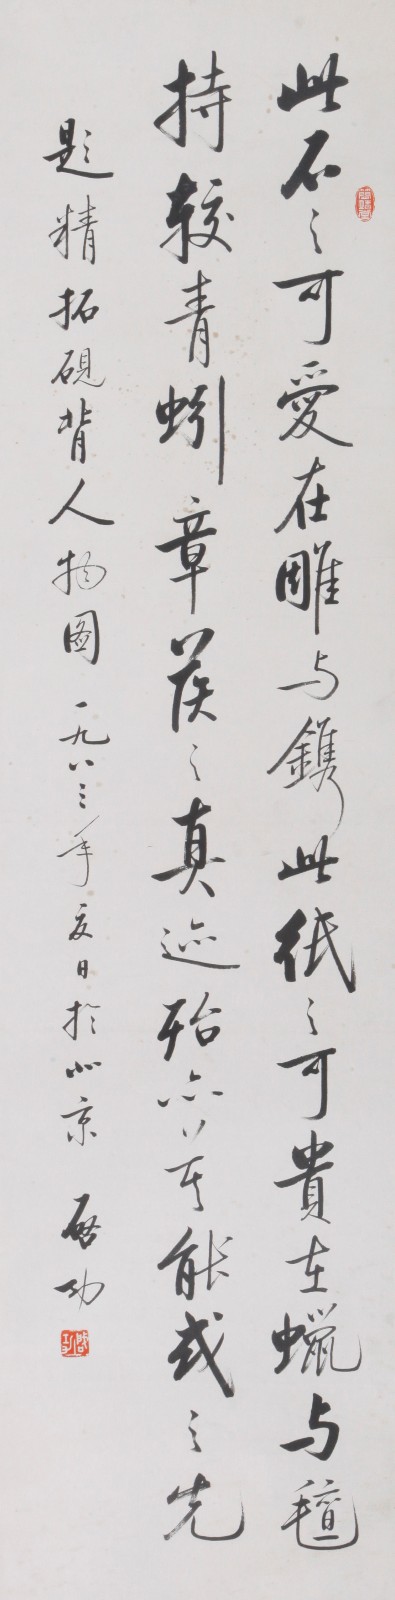 此石之可愛在雕与鎸此紙之可貴在蠟与氊
持較青蚓章侯之真迹殆亦莫能或之先
題精拓硯背人物图 一九八三年夏日於北京 启功
启功